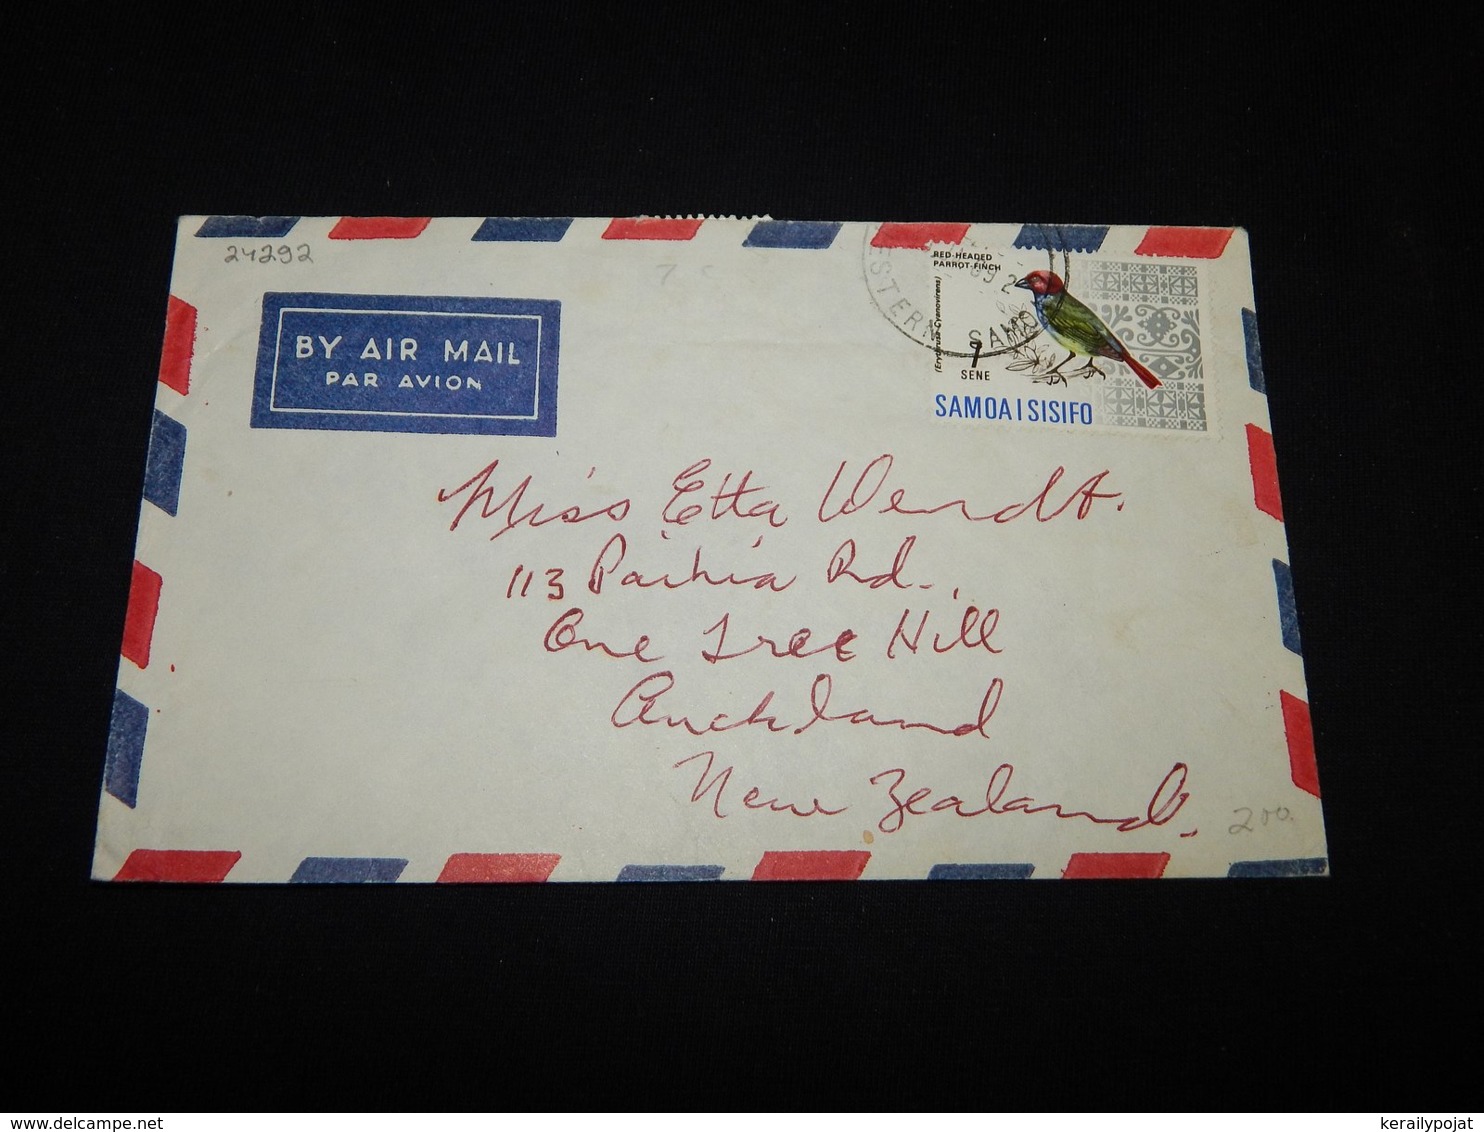 24292
7
BY AIR MAIL
PAR AVION
RED-HEADED
PARROT-FINCH
(Erythrura Cyanovirens)
WESTERN SAMOA
69
2
7
SENE
SAMOA I SISIFO
Miss Etta Wendt.
113 Paihia Rd.,
One Tree Hill
Auckland
New Zealand.
200.
kerailypojat